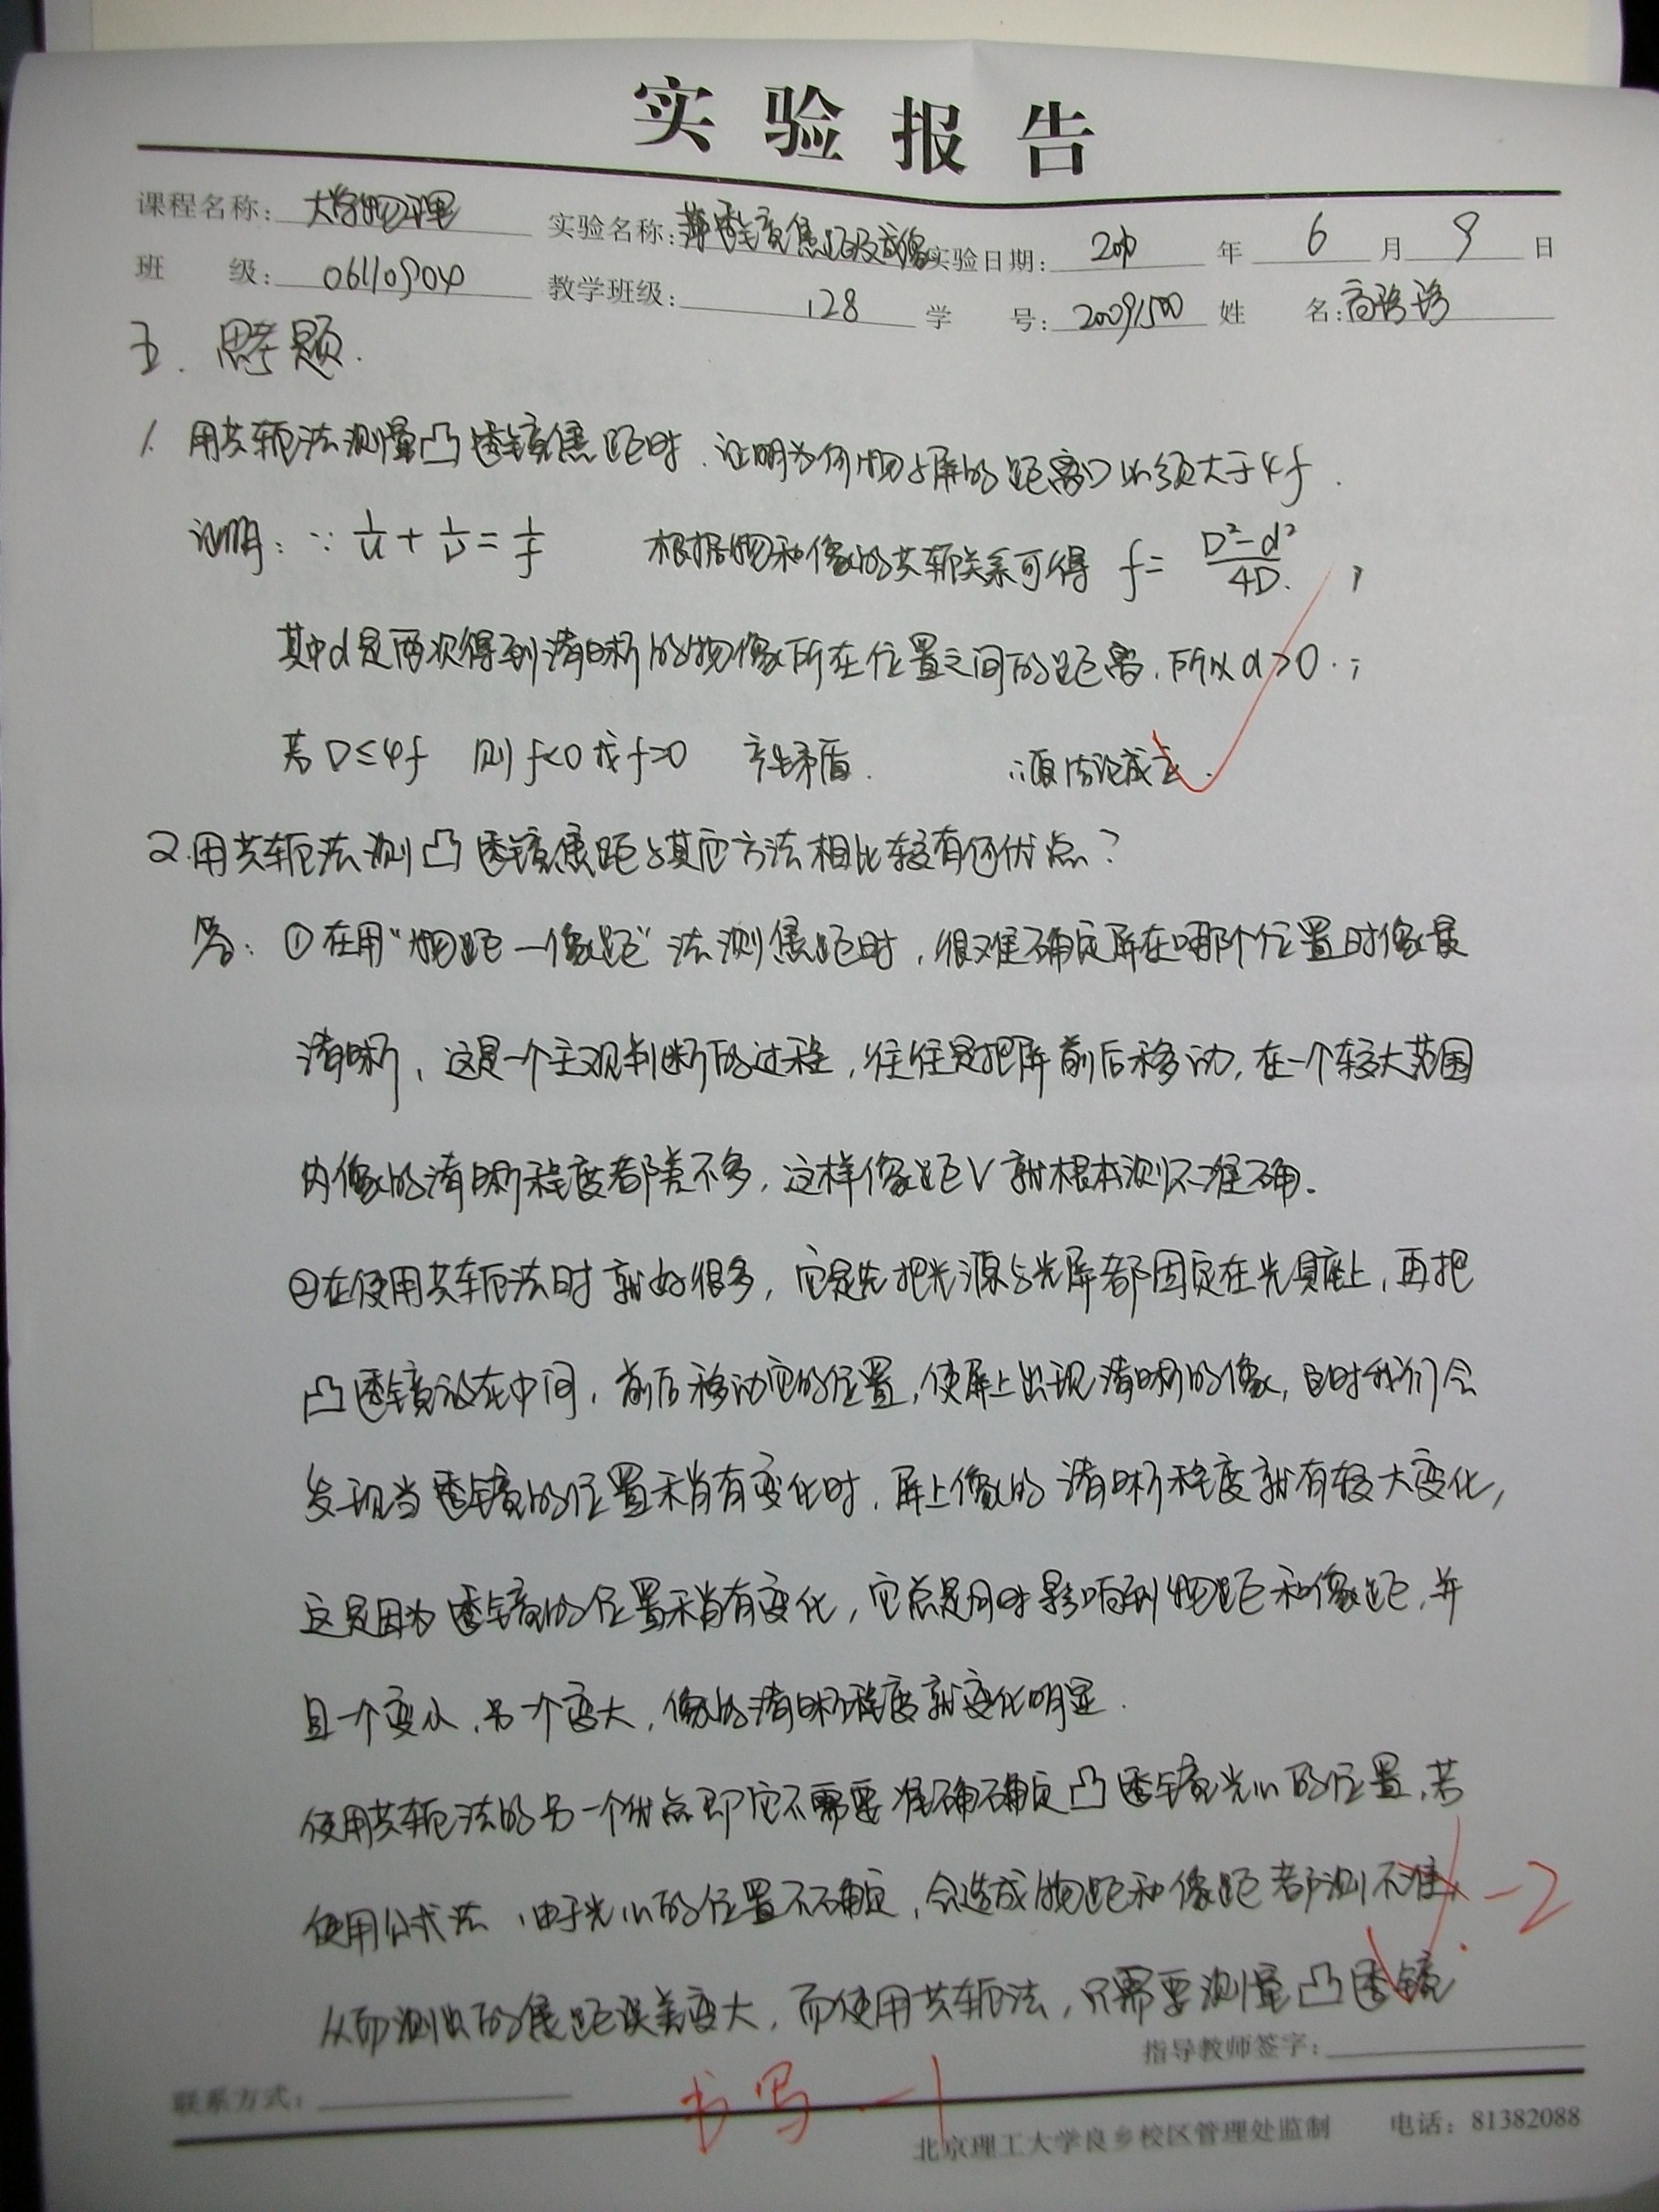 实验报告
课程名称: 大学物理 实验名称: 薄透镜焦距及成像 实验日期: 年 6 月 9 日
班 级: 06110904 教学班级: 128 学 号: 20091500 姓 名:
五. 思考题.
1. 用共轭法测量凸透镜焦距时, 证明为何物与屏的距离D必须大于4f.
证明: ∵ 1/u + 1/v = 1/f 根据物和像的共轭关系可得 f = (D²-d²)/4D. ,
其中d是两次得到清晰的物像所在位置之间的距离, 所以d>0. ;
若D≤4f 则f<0或f=0 产生矛盾. ∴原结论成立.
2.用共轭法测凸透镜焦距与其它方法相比较有何优点?
答: ①在用“物距—像距”法测焦距时, 很难确定屏在哪个位置时像最
清晰, 这是一个主观判断的过程, 往往是把屏前后移动, 在一个较大范围
内像的清晰程度都差不多, 这样像距V就根本测不准确.
②在使用共轭法时就好很多, 它是先把光源与光屏都固定在光具座上, 再把
凸透镜放在中间, 前后移动它的位置, 使屏上出现清晰的像, 此时我们会
发现当透镜的位置稍有变化时, 屏上像的清晰程度就有较大变化,
这是因为透镜的位置稍有变化, 它总是同时影响到物距和像距, 并
且一个变小, 另一个变大, 像的清晰程度就变化明显.
使用共轭法的另一个优点即它不需要准确确定凸透镜光心的位置, 若
使用公式法, 由于光心的位置不确定, 会造成物距和像距都测不准,
-2
从而测出的焦距误差变大, 而使用共轭法, 只需要测量凸透镜
指导教师签字:
联系方式:
书写 -1
北京理工大学良乡校区管理处监制 电话: 81382088